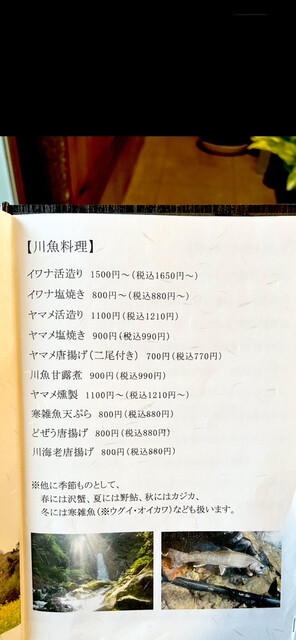 【川魚料理】
イワナ活造り 1500円～(税込1650円～)
イワナ塩焼き 800円～(税込880円～)
ヤマメ活造り 1100円(税込1210円)
ヤマメ塩焼き 900円(税込990円)
ヤマメ唐揚げ(二尾付き) 700円(税込770円)
川魚甘露煮 900円(税込990円)
ヤマメ燻製 1100円～(税込1210円～)
寒雑魚天ぷら 800円(税込880円)
どぜう唐揚げ 800円(税込880円)
川海老唐揚げ 800円(税込880円)
※他に季節ものとして、
春には沢蟹、夏には野鮎、秋にはカジカ、
冬には寒雑魚(※ウグイ・オイカワ)なども扱います。